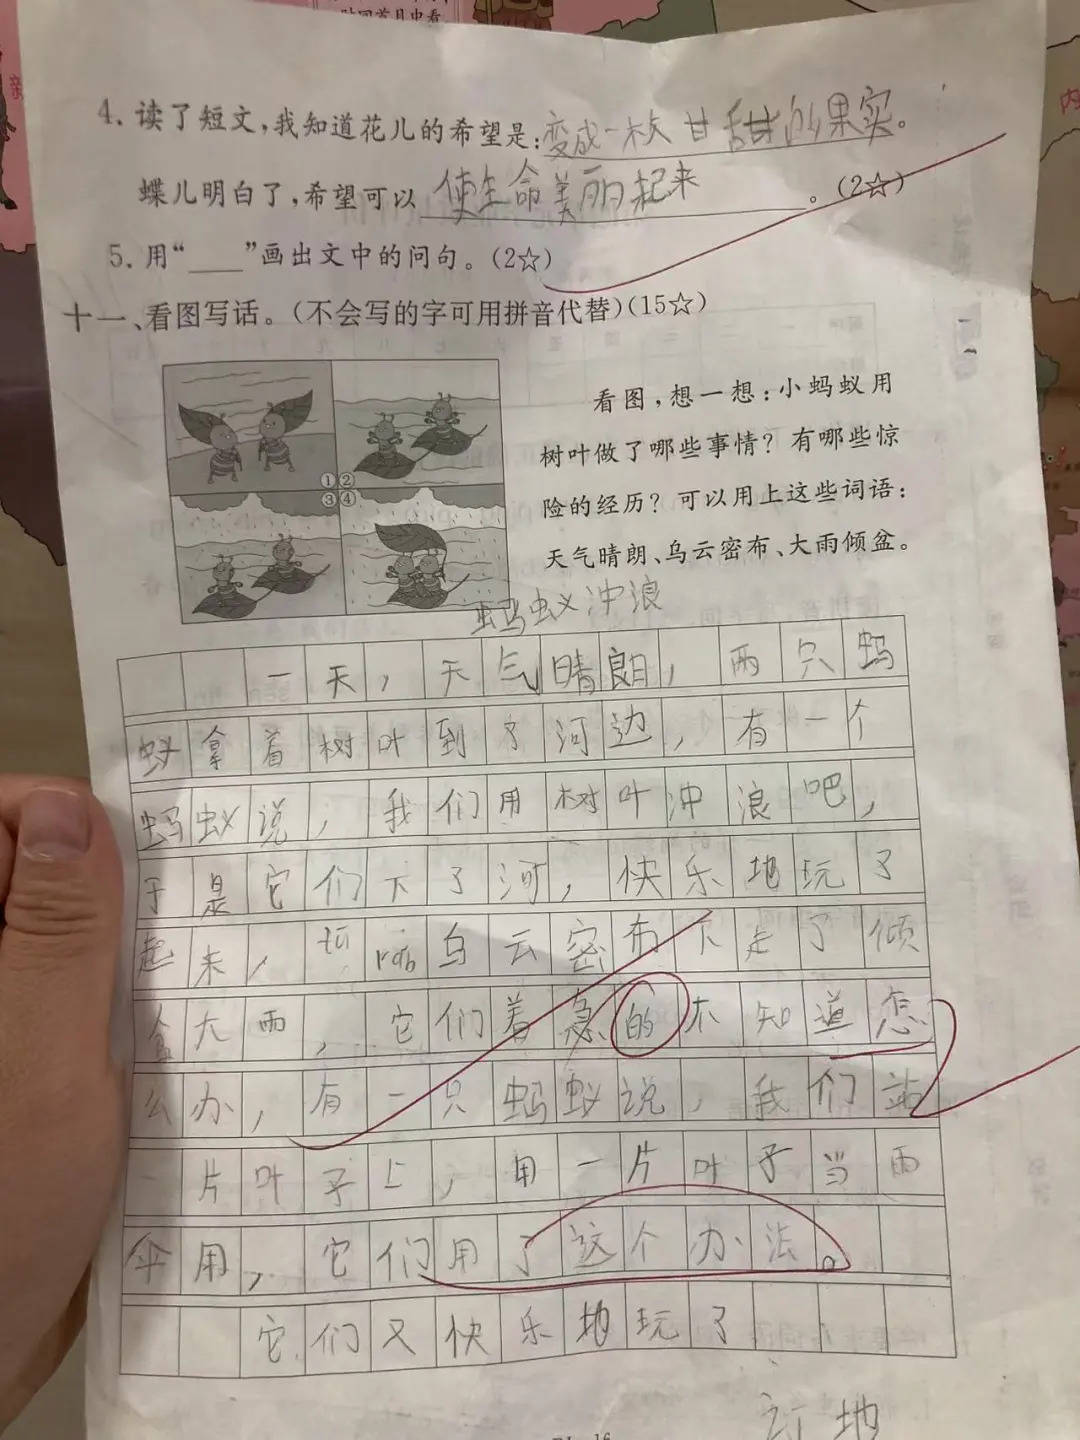 4. 读了短文,我知道花儿的希望是:变成一枚甘甜的果实。
蝶儿明白了,希望可以 使生命美丽起来 。(2☆)
5. 用“____”画出文中的问句。(2☆)
十一、看图写话。(不会写的字可用拼音代替)(15☆)
①②
③④
看图,想一想:小蚂蚁用
树叶做了哪些事情?有哪些惊
险的经历?可以用上这些词语:
天气晴朗、乌云密布、大雨倾盆。
蚂蚁冲浪
一天,天气晴朗,两只蚂
蚁拿着树叶到了河边,有一个
蚂蚁说,我们用树叶冲浪吧,
于是它们下了河,快乐地玩了
起来,乌云密布下起了倾
盆大雨,它们着急的不知道怎
么办,有一只蚂蚁说,我们站
一片叶子上,用一片叶子当雨
伞用,它们用了这个办法。
它们又快乐地玩了
订 地